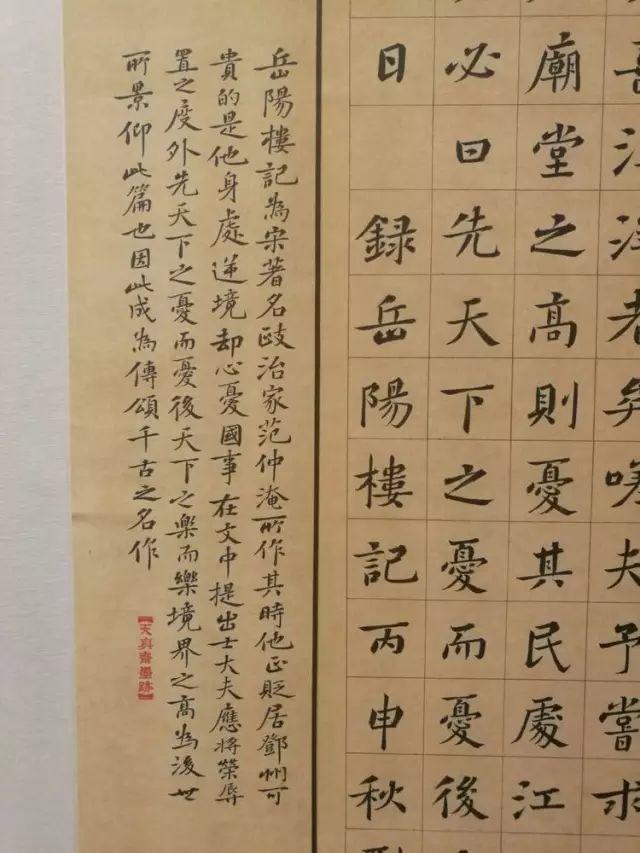 喜洋洋者矣嗟夫予嘗求
廟堂之高則憂其民處江
必曰先天下之憂而憂後
日 錄岳陽樓記丙申秋
岳陽樓記為宋著名政治家范仲淹所作其時他正貶居鄧州可
貴的是他身處逆境却心憂國事在文中提出士大夫應將榮辱
置之度外先天下之憂而憂後天下之樂而樂境界之高為後世
所景仰此篇也因此成為傳頌千古之名作
【天真齋墨跡】